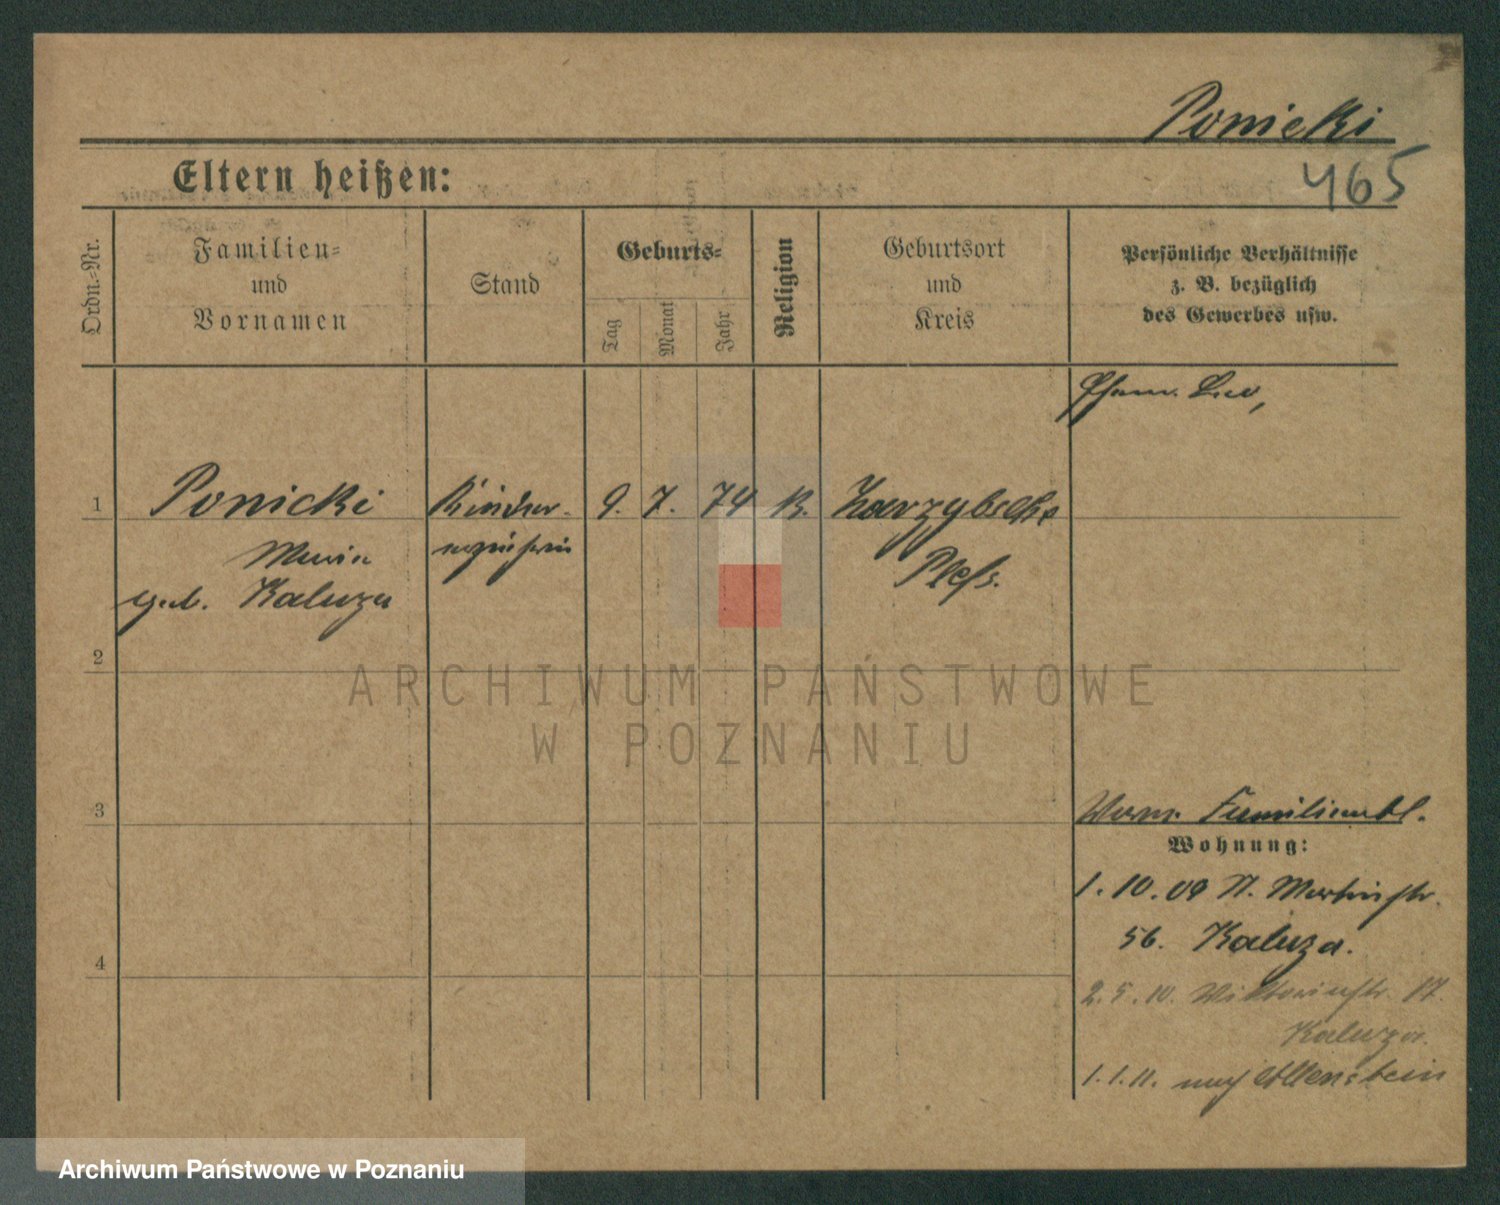 Ponicki
465
Eltern heißen:
Ordn.-Nr.
Familien-
und
Vornamen
Stand
Geburts-
Tag
Monat
Jahr
Religion
Geburtsort
und
Kreis
Persönliche Verhältnisse
z. B. bezüglich
des Gewerbes usw.
1
Ponicki
Maria
geb. Kaluza
Kinder-
9. 7. 74 K.
Pleß.
2
3
Familienbl.
Wohnung:
1. 10. 09 St. Martinstr.
56. Kaluza.
4
2. 5. 10. Viktoriastr. 17.
Kaluza.
1. 1. 11. nach Allenstein
ARCHIWUM PAŃSTWOWE
W POZNANIU
Archiwum Państwowe w Poznaniu